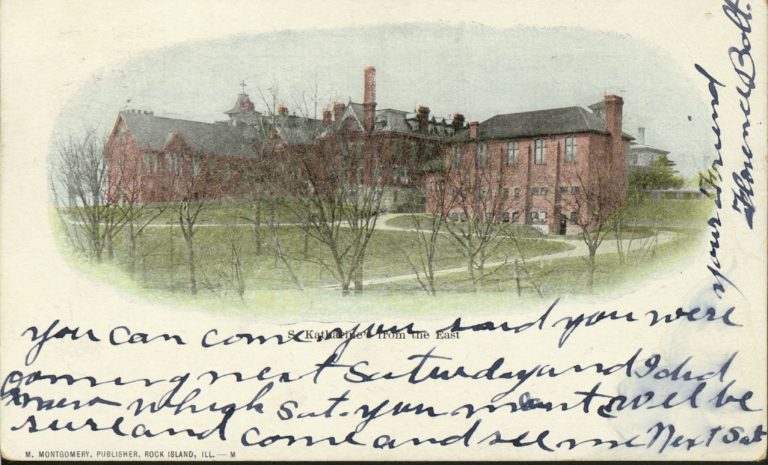 your Friend
Florence Bolt.
S. Katharine's from the East
you can come you said you were
coming next Saturday and I did
know which Sat. you ment will be
sure and come and see me Next Sat
M. MONTGOMERY, PUBLISHER, ROCK ISLAND, ILL. — M